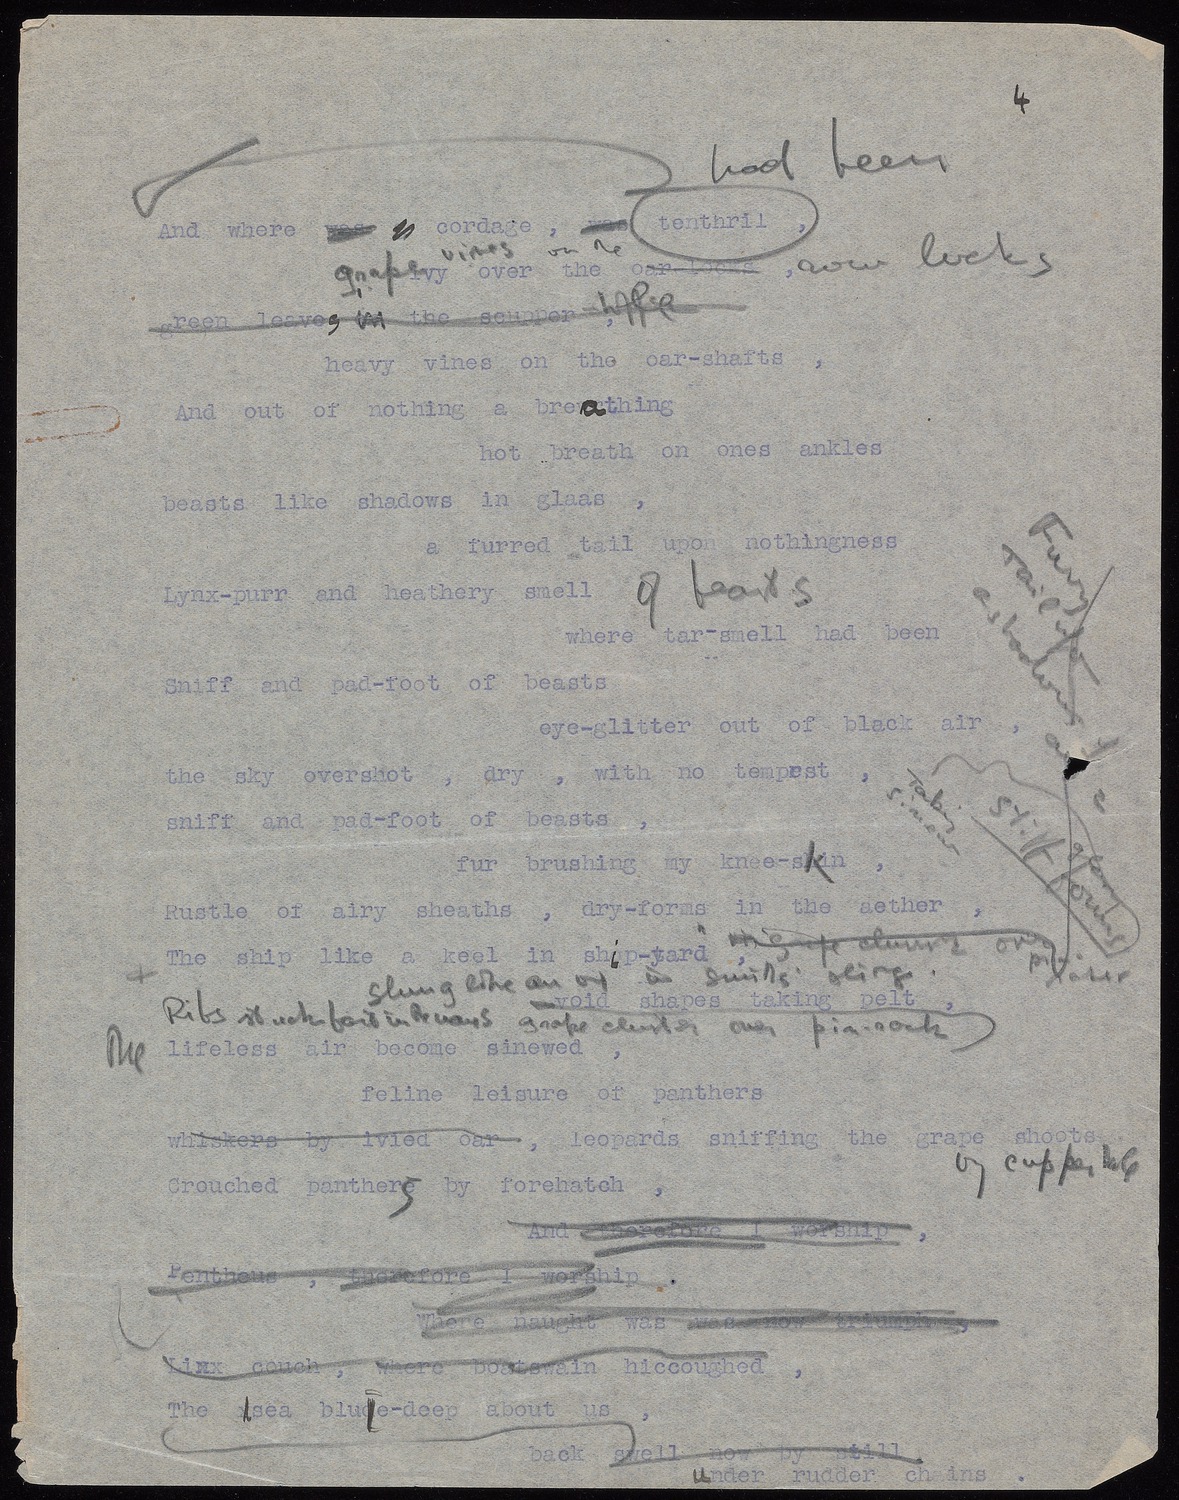 4
had been
And where was is cordage , was tenthril ,
grape vines on the
ivy over the oar-locks , now locks
green leaves in the scupper- ,
heavy vines on the oar-shafts ,
And out of nothing a breathing
hot breath on ones ankles
beasts like shadows in glaas ,
a furred tail upon nothingness
Lynx-purr and heathery smell of beasts
where tar-smell had been
Sniff and pad-foot of beasts
eye-glitter out of black air ,
the sky overshot , dry , with no temprst ,
sniff and pad-foot of beasts ,
fur brushing my knee-skin ,
Rustle of airy sheaths , dry-forms in the aether ,
The ship like a keel in ship-yard ,
slung like an ox in smith's slings .
void shapes taking pelt ,
Ribs stuck fast in the ways grape cluster over pin-rack
The lifeless air become sinewed ,
feline leisure of panthers
whiskers by ivied oar , leopards sniffing the grape shoots
by scupper hole
Crouched panthers by forehatch ,
And therefore I worship ,
Pentheus , therefore I worship .
Where naught was was now triumph ,
Linx couch , where boatswain hiccoughed ,
The sea blue-deep about us ,
back swell now by still
under rudder chains .
Furry
tail
shadows
taking
sinew
stiff